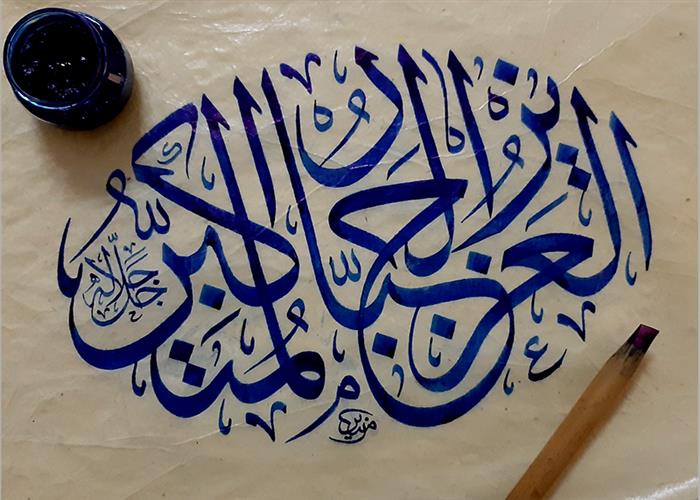 العزيز الجبار المتكبر
جل جلاله